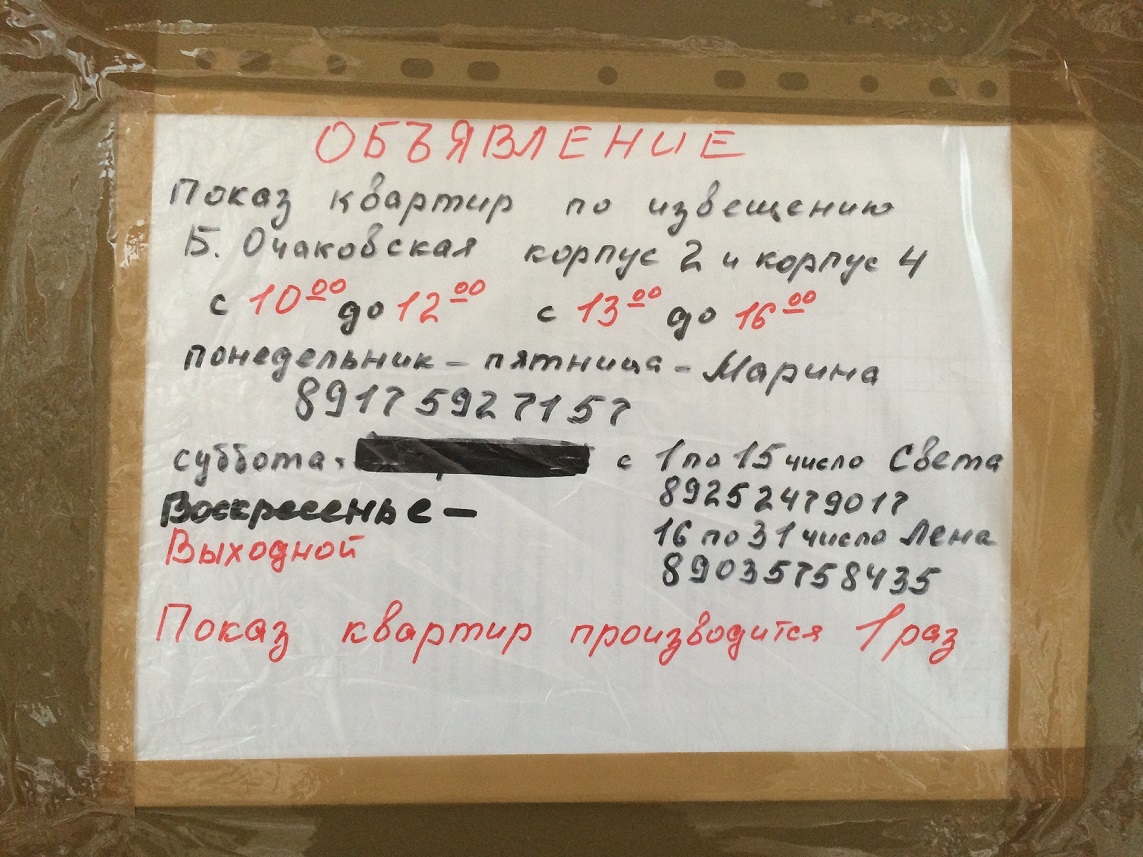 ОБЪЯВЛЕНИЕ
Показ квартир по извещению
Б. Очаковская корпус 2 и корпус 4
с 10⁰⁰ до 12⁰⁰ с 13⁰⁰ до 16⁰⁰
понедельник – пятница – Марина
89175927157
суббота с 1 по 15 число Света
89252479017
Воскресенье –
16 по 31 число Лена
Выходной
89035758435
Показ квартир производится 1 раз